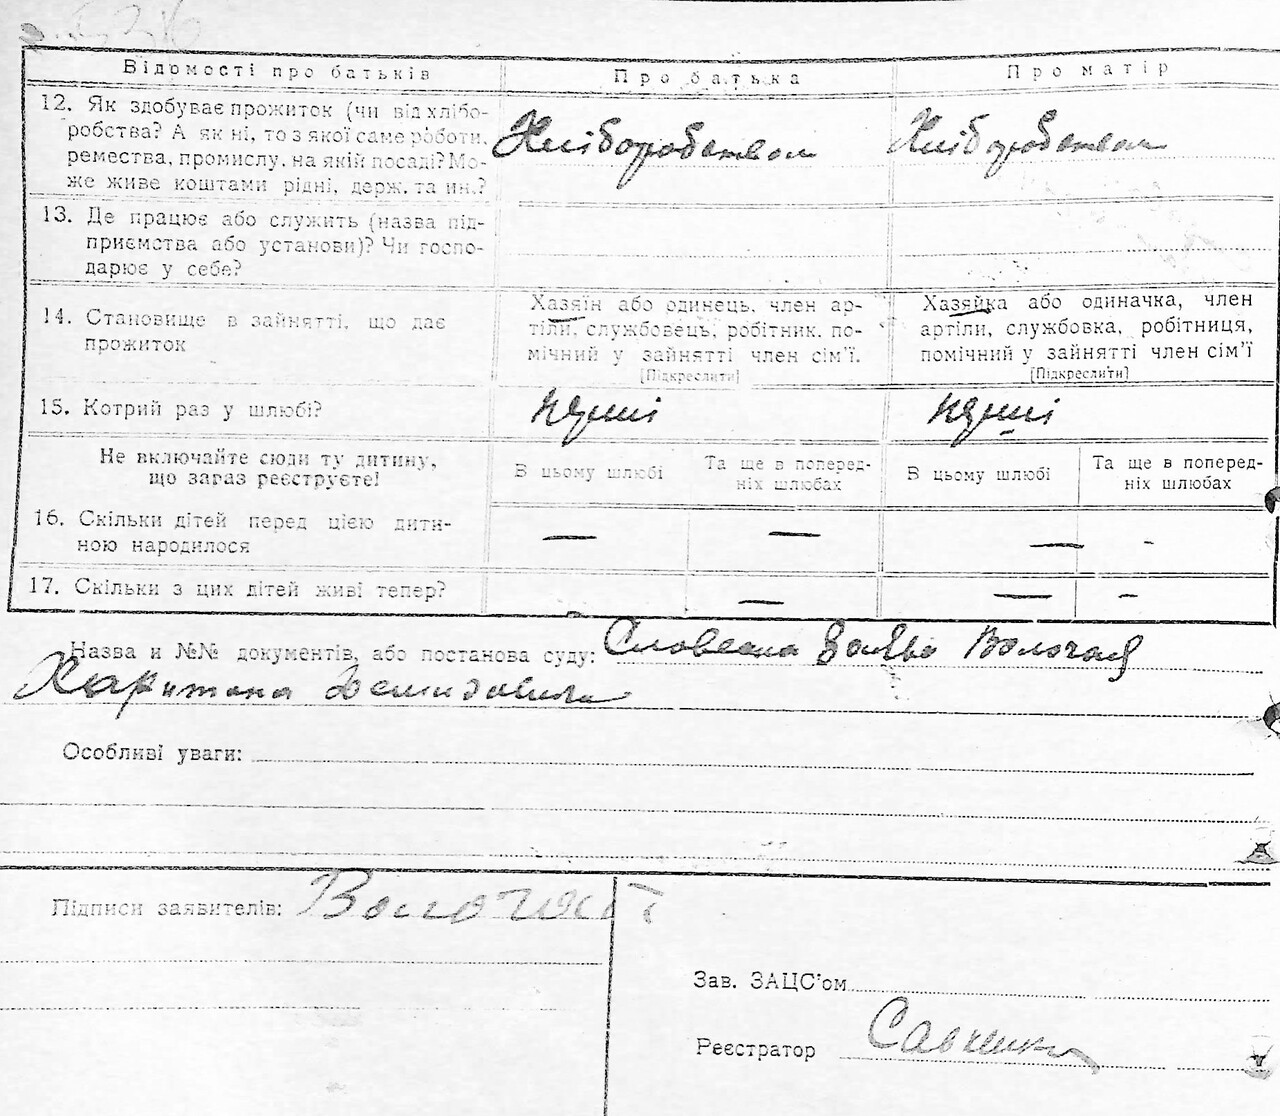 Відомості про батьків
Про батька
Про матір
12. Як здобуває прожиток (чи від хлібо-
робства? А як ні, то з якої саме роботи,
ремества, промислу, на якій посаді? Мо-
же живе коштами рідні, держ. та ин.?
Хліборобством
Хліборобством
13. Де працює або служить (назва під-
приємства або установи)? Чи госпо-
дарює у себе?
14. Становище в зайнятті, що дає
прожиток
Хазяїн або одинець, член ар-
тіли, службовець, робітник, по-
мічний у зайнятті член сім'ї.
[Підкреслити]
Хазяйка або одиначка, член
артіли, службовка, робітниця,
помічний у зайнятті член сім'ї
[Підкреслити]
15. Котрий раз у шлюбі?
Не включайте сюди ту дитину,
що зараз реєструєте!
В цьому шлюбі
Та ще в поперед-
ніх шлюбах
В цьому шлюбі
Та ще в поперед-
ніх шлюбах
16. Скільки дітей перед цією дити-
ною народилося
— — — -
17. Скільки з цих дітей живі тепер?
— — -
Назва и №№ документів, або постанова суду: Словесна заява
Харитона Демидовича
Особливі уваги:
Підписи заявителів:
Зав. ЗАЦС'ом
Реєстратор Савченко